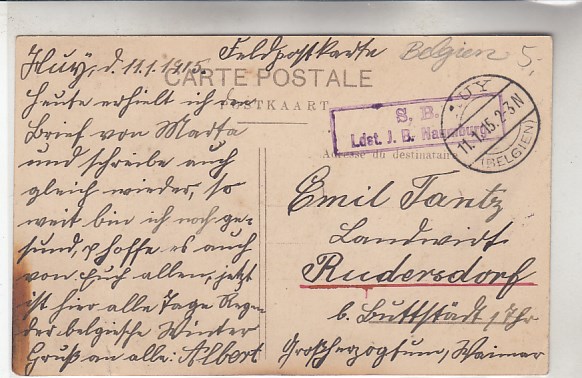 Huy, d. 11.1.1915.
Feldpostkarte
Belgien 5.
CARTE POSTALE
POSTKAART
Heute erhielt ich den
Brief von Marta
und schreibe auch
gleich wieder, so
weit bin ich noch ge-
sund, & hoffe es auch
von Euch allen, jetzt
ist hier alle Tage Regen
der belgische Winter
Gruß an alle: Albert
S. B.
Ldst. J. B. Naumburg
HUY
11.1.15. 2-3 N
(BELGIEN)
Adresse du destinataire
Emil Tantz
Landwirt
Rudersdorf
b. Buttstädt i/Thr
Großherzogtum, Weimar